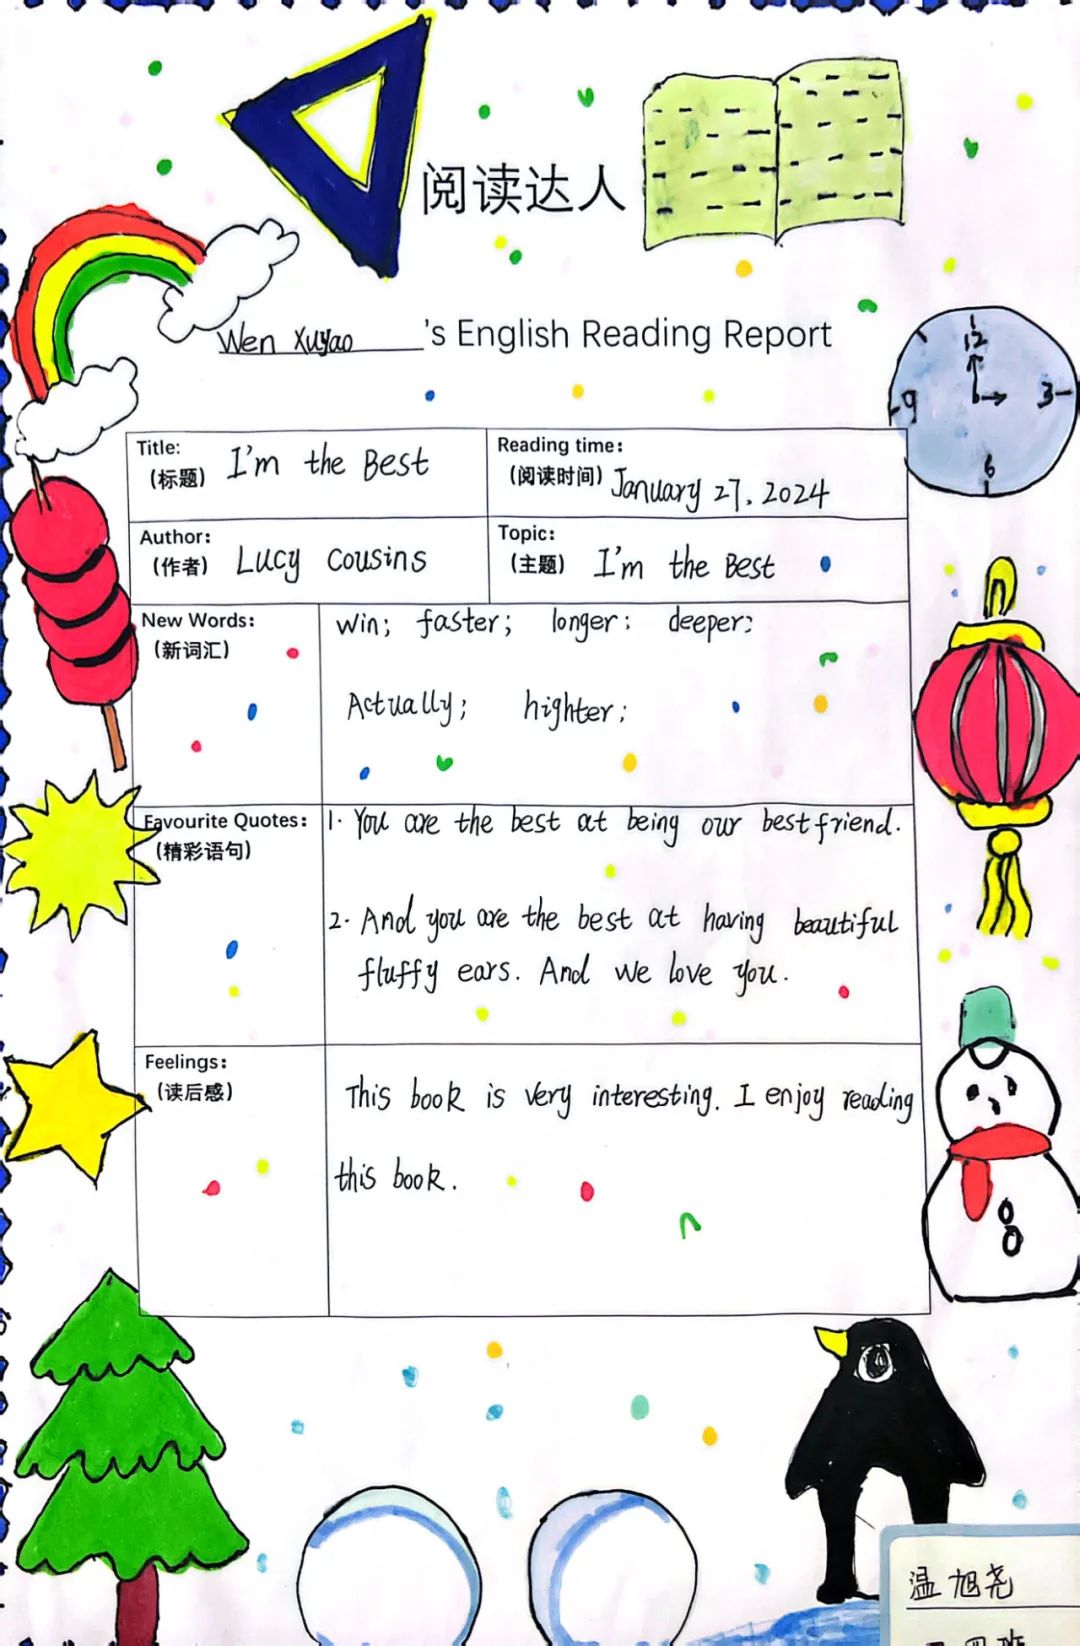 阅读达人
Wen Xuyao 's English Reading Report
12
9
3
6
Title:
(标题)
I'm the Best
Reading time:
(阅读时间)
January 27, 2024
Author:
(作者)
Lucy Cousins
Topic:
(主题)
I'm the Best
New Words:
(新词汇)
win; faster; longer; deeper;
Actually; highter;
Favourite Quotes:
(精彩语句)
1. You are the best at being our best friend.
2. And you are the best at having beautiful
fluffy ears. And we love you.
Feelings:
(读后感)
This book is very interesting. I enjoy reading
this book.
温旭尧